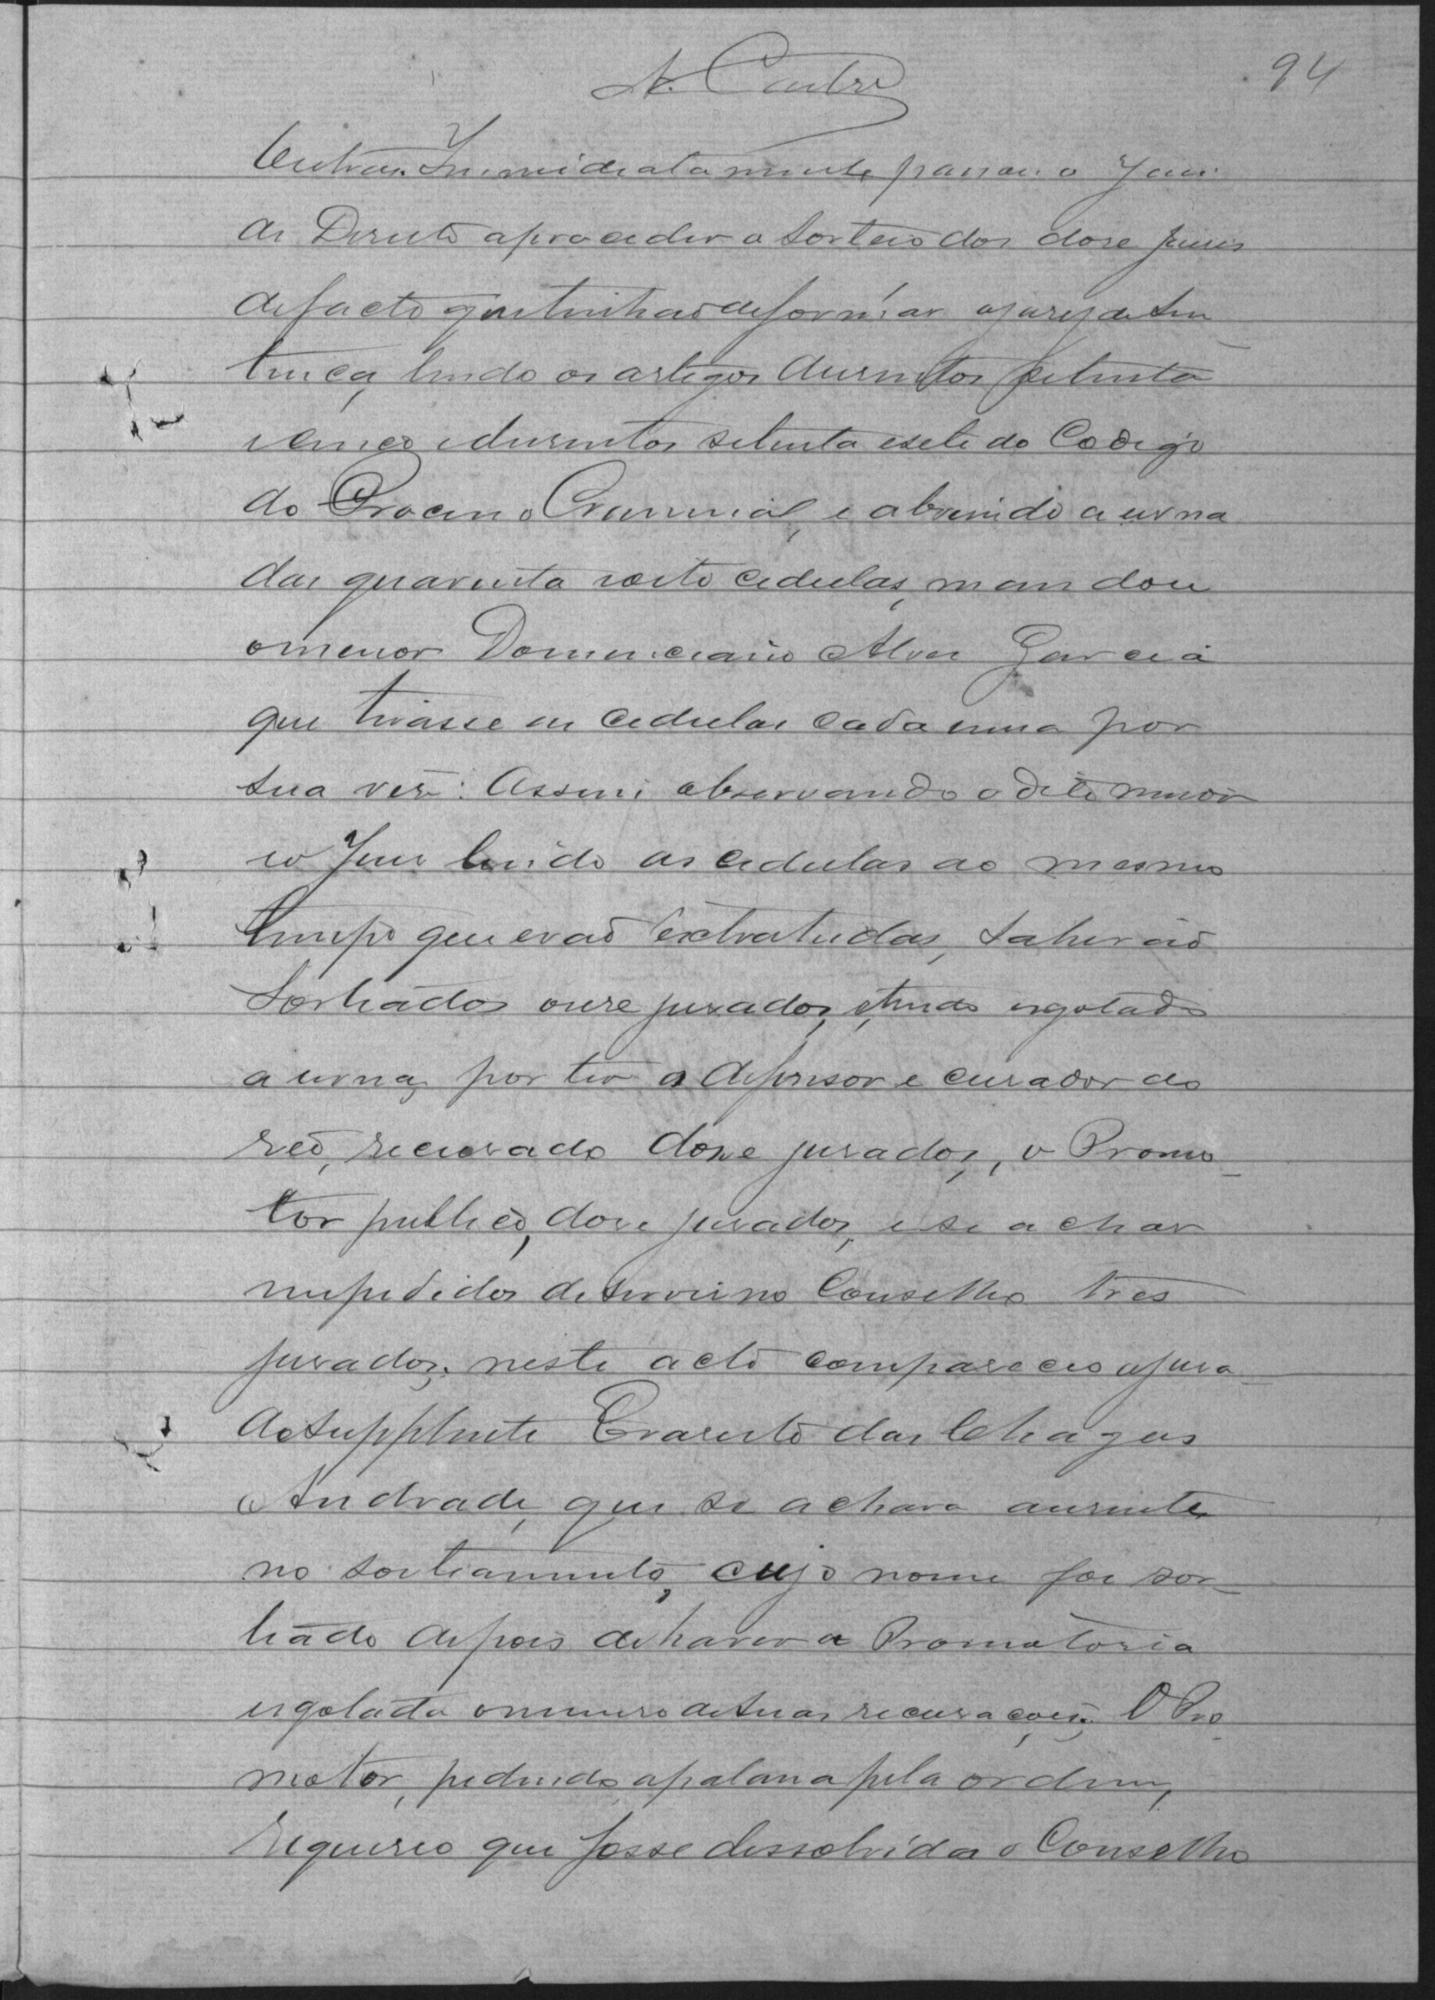 A. Castro
94
Outras. Immediatamente passou o Juis
de Direito a proceder o sorteio dos dose juises
de facto que tinhaõ de formar o jury de sen-
tença, lendo os artigos dusentos setenta
e cinco e dusentos setenta e sete do Codigo
do Processo Criminal, e abrindo a urna
das quarenta e oito cedulas, mandou
o menor Domiciano Alves Garcia
que tirasse as cedulas cada uma por
sua vez: Assim observando o dito menor
e o Juis lendo as cedulas ao mesmo
tempo que eraõ extrahidas, sahiraõ
sorteados onse jurados, tendo esgotado
a urna, por ter o defensor e curador do
reo, recusado dose jurados, o Promo-
tor publico, dose jurados, e se achar
impedidos de servir no Conselho tres
jurados, neste acto compareceo o jura-
do supplente Evaristo das Chagas
Andrade, que se achava ausente
no sorteamento, cujo nome foi sor-
teado depois de haver a Promotoria
esgotado o numero de suas recusações. O Pro-
motor, pedindo a palavra pela ordem,
requereo que fosse dissolvido o Conselho